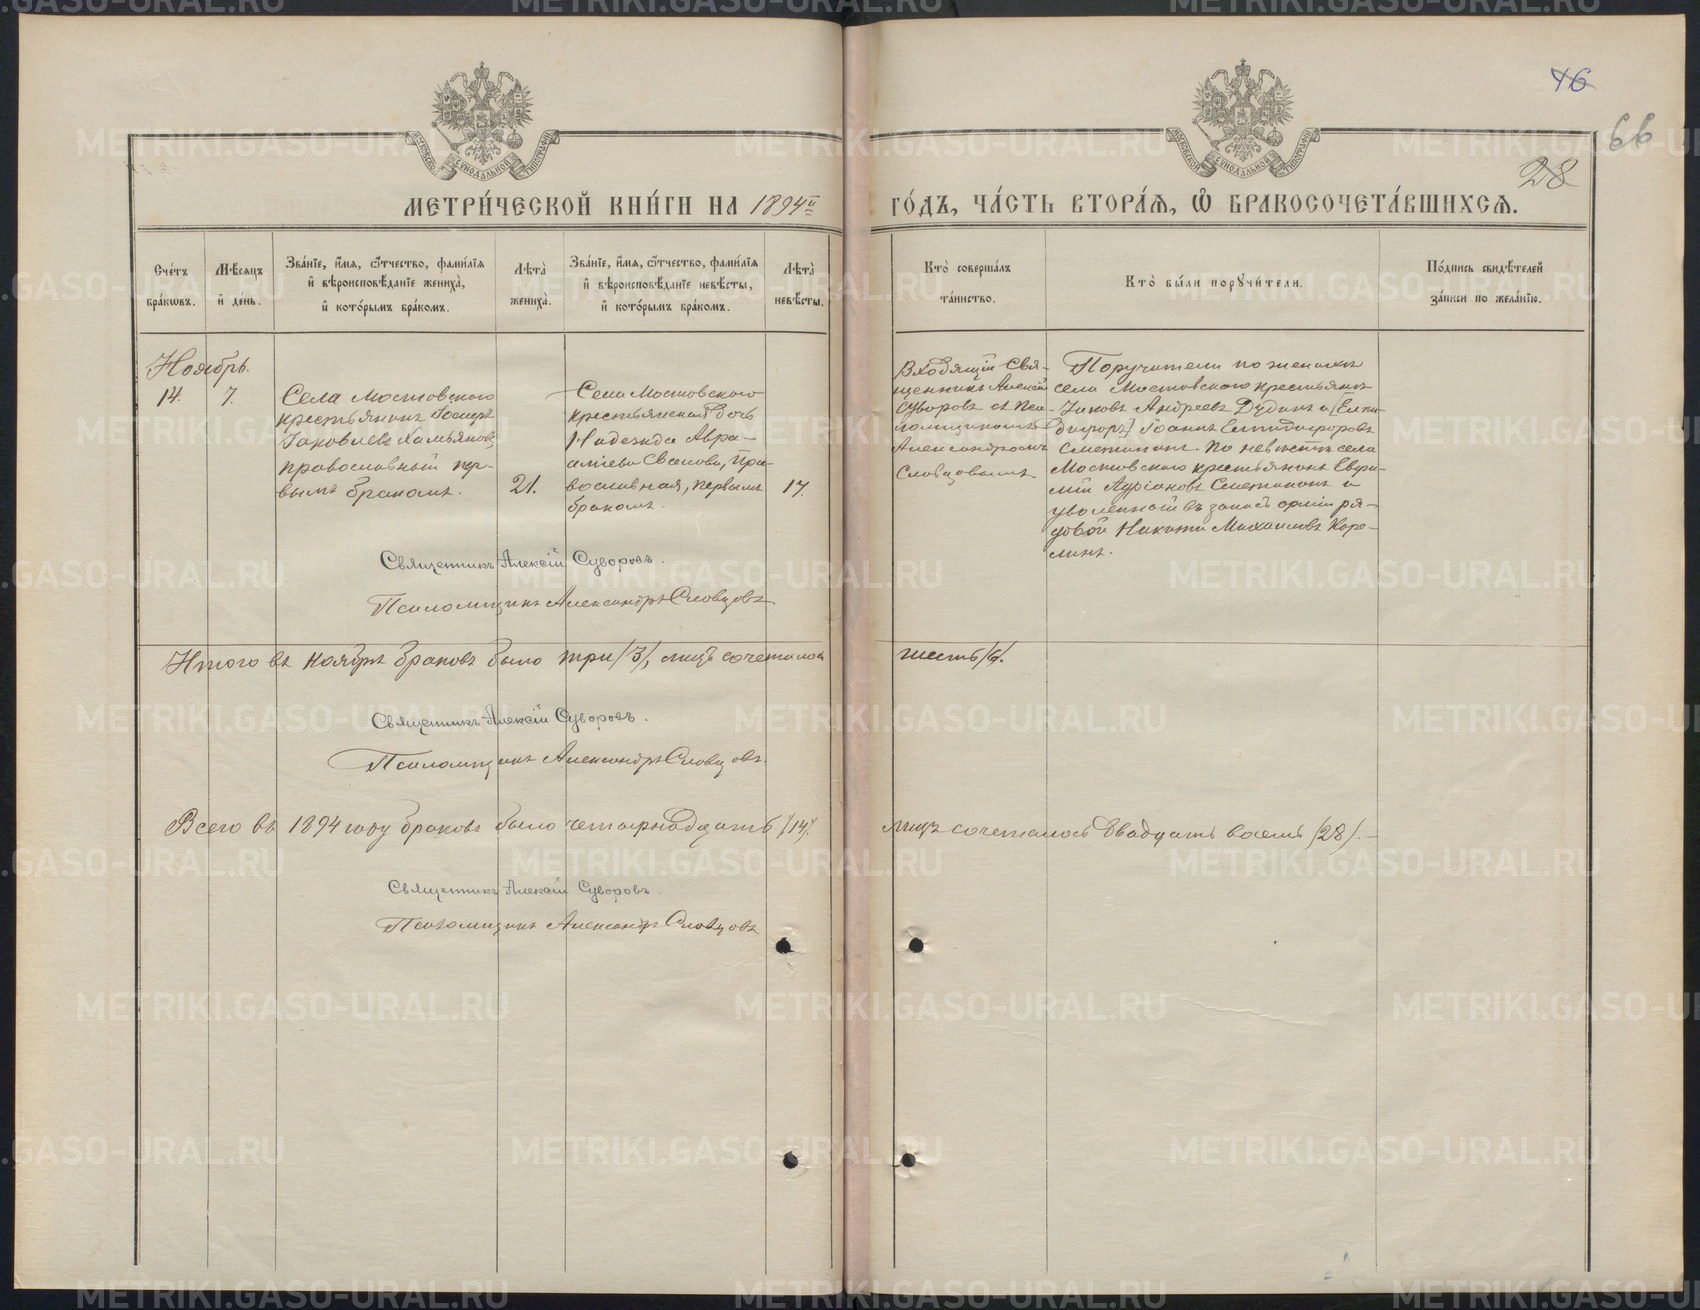 46
66
28
МЕТРИ́ЧЕСКОЙ КНИ́ГИ НА 1894й ГО́ДЪ, ЧА́СТЬ ВТОРА́Я, Ѽ БРАКОСОЧЕТА́ВШИХСЯ.
Сче́тъ бра́ковъ.
Мѣ́сяцъ и҆ де́нь.
Зва́нїе, и҆́мя, ѻ҆́тчество, фами́лїя
и҆ вѣроисповѣ́данїе жениха̀,
и҆ кото́рымъ бра́комъ.
Лѣта̀ жениха̀.
Зва́нїе, и҆́мя, ѻ҆́тчество, фами́лїя
и҆ вѣроисповѣ́данїе невѣ́сты,
и҆ кото́рымъ бра́комъ.
Лѣта̀ невѣ́сты.
Кто̀ соверша́лъ та́инство.
Кто̀ бы́ли поручи́тели.
По́дпись свидѣ́телей за́писи по жела́нїю.
Ноябрь.
14.
7.
Села Мостовскаго
крестьянинъ
Іаковлевъ
православный пер-
вымъ бракомъ.
21.
Села Мостовскаго
крестьянская дочь
Надежда Авра-
амiева, пра-
вославная, первымъ
бракомъ.
17.
Входящій Свя-
щенникъ Алексій
Суворовъ съ пса-
ломщикомъ
Александромъ
Словцовымъ
Поручители по женихѣ
села Мостовскаго крестьяне
Іаковъ Андреевъ Дудинъ и [Елпи-
дифоръ] Іоаннъ Елпидифоровъ
Сметанинъ. По невѣстѣ села
Мостовскаго крестьянинъ Евфи-
мій Сметанинъ и
уволенный въ запасъ арміи ря-
довой Никита Михаиловъ Каре-
линъ.
Священникъ Алексій Суворовъ.
Псаломщикъ Александръ Словцовъ
Итого въ ноябрѣ браковъ было три /3/, лицъ сочеталось шесть /6/.
Священникъ Алексій Суворовъ.
Псаломщикъ Александръ Словцовъ.
Всего въ 1894 году браковъ было четырнадцать /14/. лицъ сочеталось двадцать восемь /28/.
Священникъ Алексій Суворовъ.
Псаломщикъ Александръ Словцовъ
METRIKI.GASO-URAL.RU